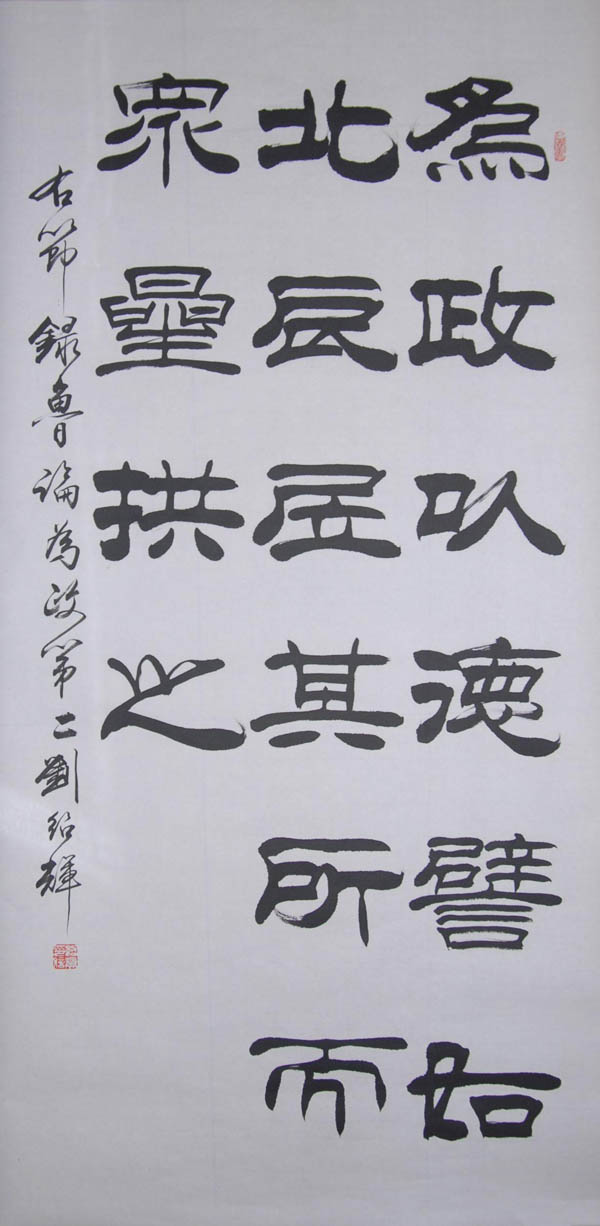 為政以德譬如
北辰居其所而
眾星拱之
右節錄魯論為政第二劉紹輝